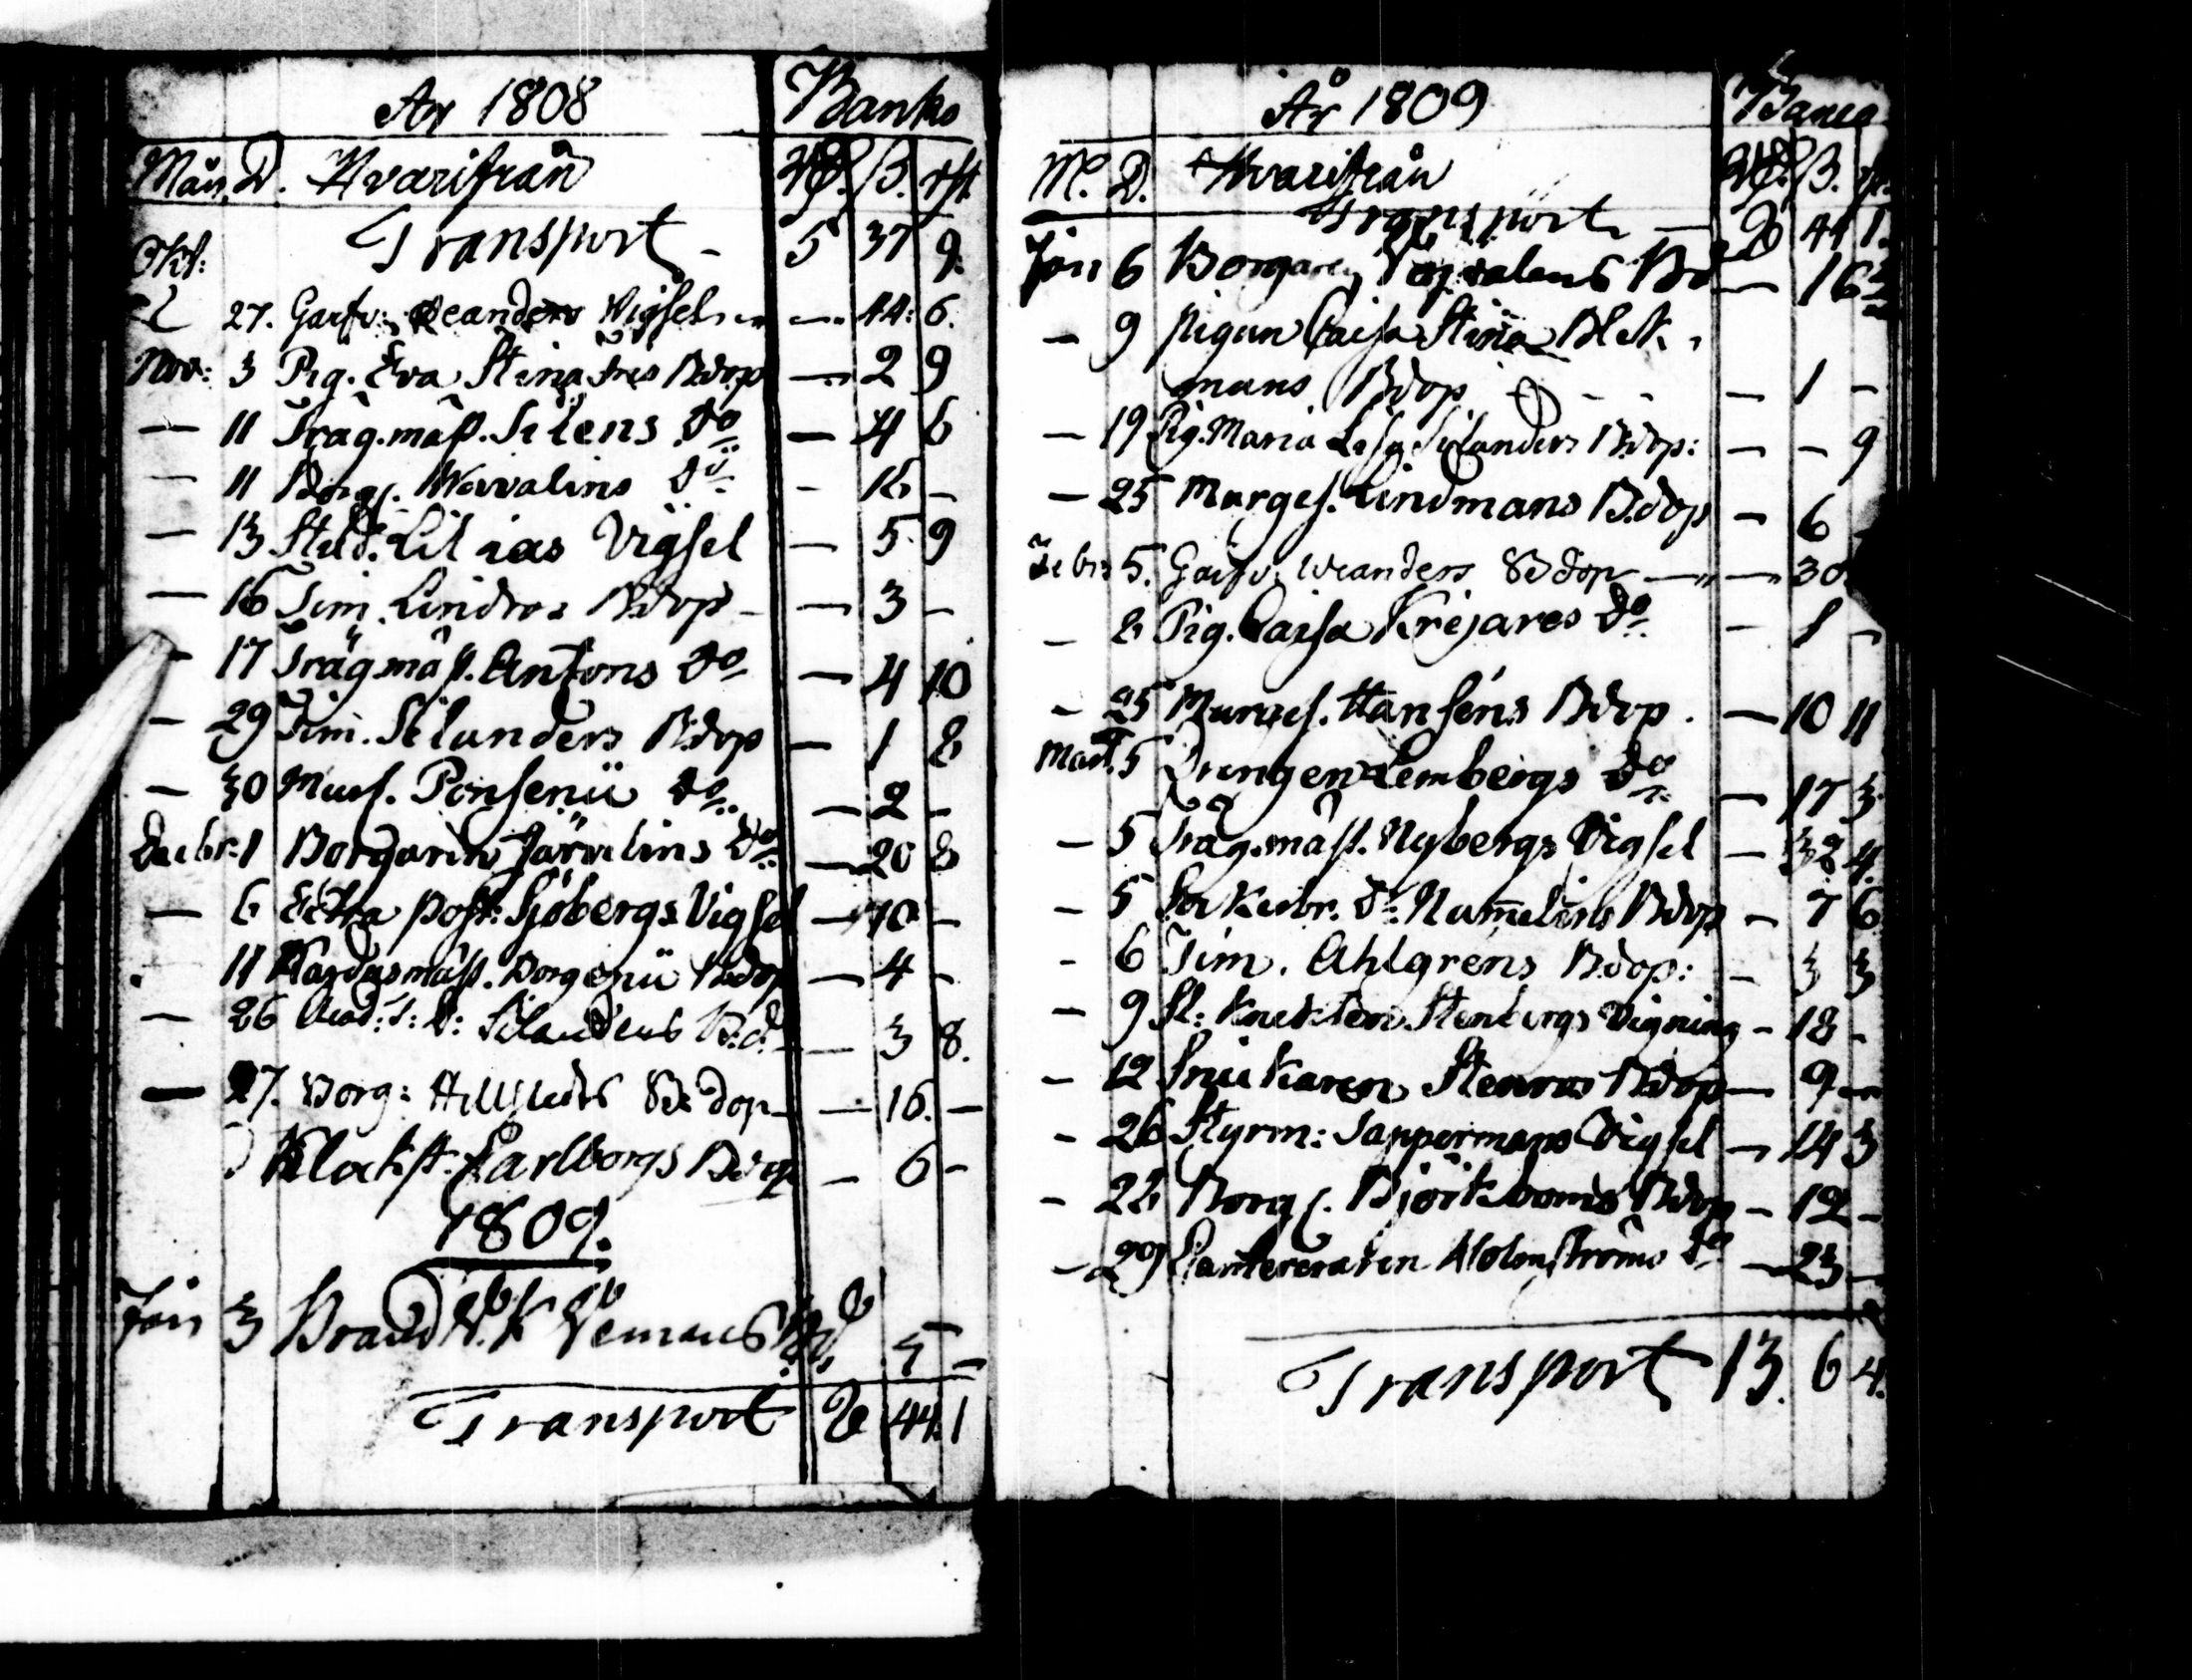 År 1808 Banko
Mån. D. Hvarifrån Rd. ß. rst
Okt: Transport - 5 37 9.
27. Garfv: Weanders Vigsel — 44. 6.
Nov: 3 Pig. Eva Stina Bdop — 2 9
— 11 Träg.mäst. Silens do — 4 6
— 11 Borgs. Wavalins do - 16 -
— 13 Stud. Lilias Vigsel — 5 9
— 16 Tim. Lindros Bdop — 3 -
— 17 Trägmäst. Antons do — 4 10
— 29 Tim. Silanders Bdop — 1 8
— 30 Murs. Ponsenii do — 2 -
Decbr: 1 Borgaren Järvelins do — 20 8
— 6 Extra post: Sjöbergs Vigsel — 40 -
11 Bdop — 4 -
— 26 Silanders B.d. — 3 8.
— 27. Borg: Bdop — 16. —
Klockst. Carlborgs Bdop — 6 -
1809.
Jan 3 5 -
Transport 8 44. 1
År 1809 Banco
M. D. Hvarifrån Rd. ß.
Transport — 8 44 1.
Jan 6 Borgaren Bd — 16
— 9 pigan Caisa Stina Blek-
mans Bdop — 1 -
— 19 Pig. Maria Lisa Silanders Bdop: — - 9
— 25 Murges. Lindmans Bdop — 6
Febr 5. Garfv: Weanders Bdop — 30
— 8 Pig. Caisa Krejares do — 1 -
- 25 Murges. Hanséns Bdop. — 10 11
Mart. 5 Drengen Lembergs do — 17 3
— 5 Träg.mäst. Nybergs Vigsel — 32 4.
- 5 Sockerbr. d: Numelins Bdop — 7 6
- 6 Tim. Ahlgrens Bdop: — 3 3
- 9 Sl: Knekten Stenbergs Vigning - 18 -
- 12 Snickaren Stenros Bdop — 9 -
- 26 Styrm: Sappermans Vigsel — 14 3
- 28 Borgs. Björkboms Bdop - 12 -
- 29 Holmströms do — 23 —
Transport 13. 6 4.